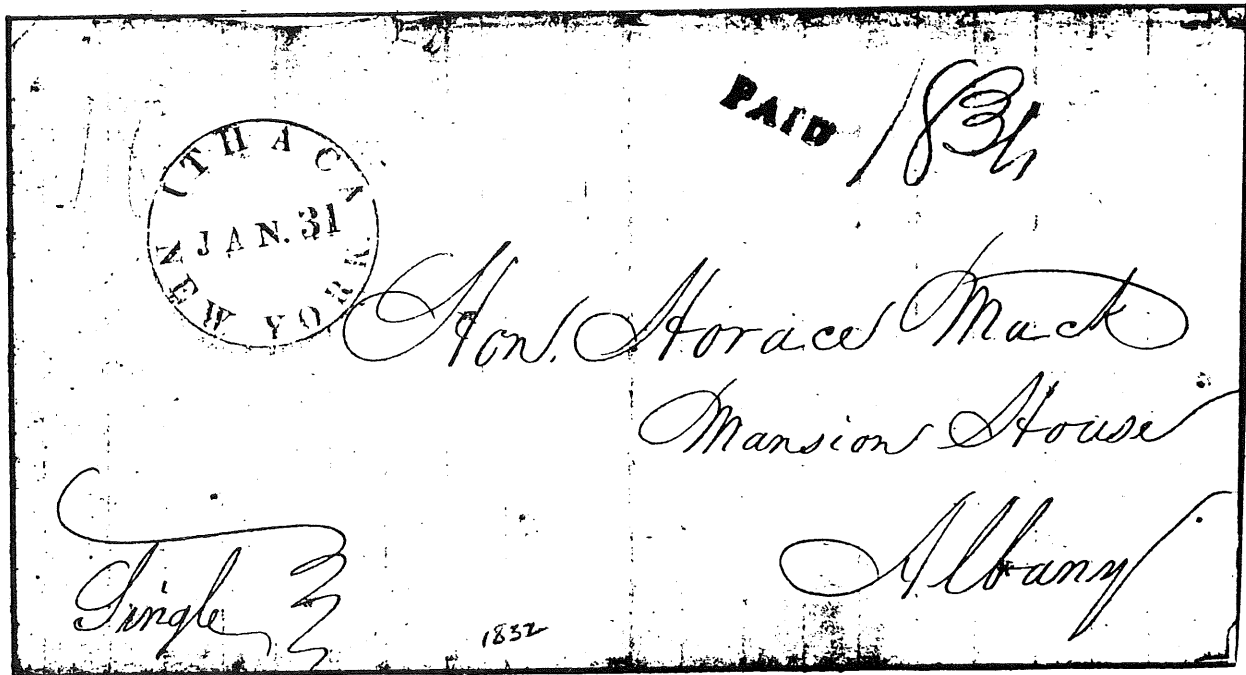 PAID
ITHACA
JAN. 31
NEW YORK
Hon. Horace Mack
Mansion House
Albany
Single
1832